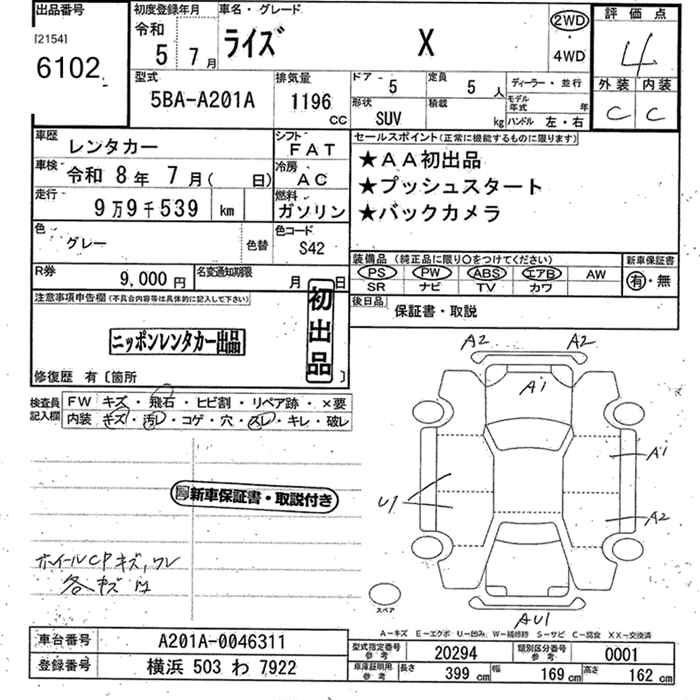 出品番号
[2154]
6102
初度登録年月
令和
5 7月
車名・グレード
ライズ X
2WD
・
4WD
評価点
4
外装 内装
C C
型式
5BA-A201A
排気量
1196
CC
ドア・ 5
定員 5人
ディーラー・並行
形状
SUV
積載
kg
モデル年式 年
ハンドル 左・右
車歴 レンタカー
シフト FAT
車検 令和 8年 7月( 日)
冷房 AC
走行 9万9千539 km
燃料 ガソリン
色 グレー
色替
色コード S42
R券 9,000円
名変通知期限 月 日
セールスポイント(正常に機能するものに限ります)
★AA初出品
★プッシュスタート
★バックカメラ
装備品(純正品に限り○をつけてください)
新車保証書
PS PW ABS エアB AW
SR ナビ TV カワ
有・無
後日品 保証書・取説
注意事項申告欄(不具合内容等は具体的に記入して下さい)
初出品
ニッポンレンタカー出品
修復歴 有〔箇所 〕
検査員記入欄
FW キズ・飛石・ヒビ割・リペア跡・×要
内装 キズ・汚レ・コゲ・穴・スレ・キレ・破レ
新車保証書・取説付き
ホイールCPキズ,ワレ
各キズ
A2 A2
A1
A1
U1
A2
AU1
スペア
A―キズ E―エクボ U―凹み W―補修跡 S―サビ C―腐食 XX―交換済
車台番号 A201A-0046311
登録番号 横浜 503 わ 7922
型式指定番号参考 20294
類別区分番号参考 0001
車庫証明用参考 長さ 399 cm 幅 169 cm 高さ 162 cm